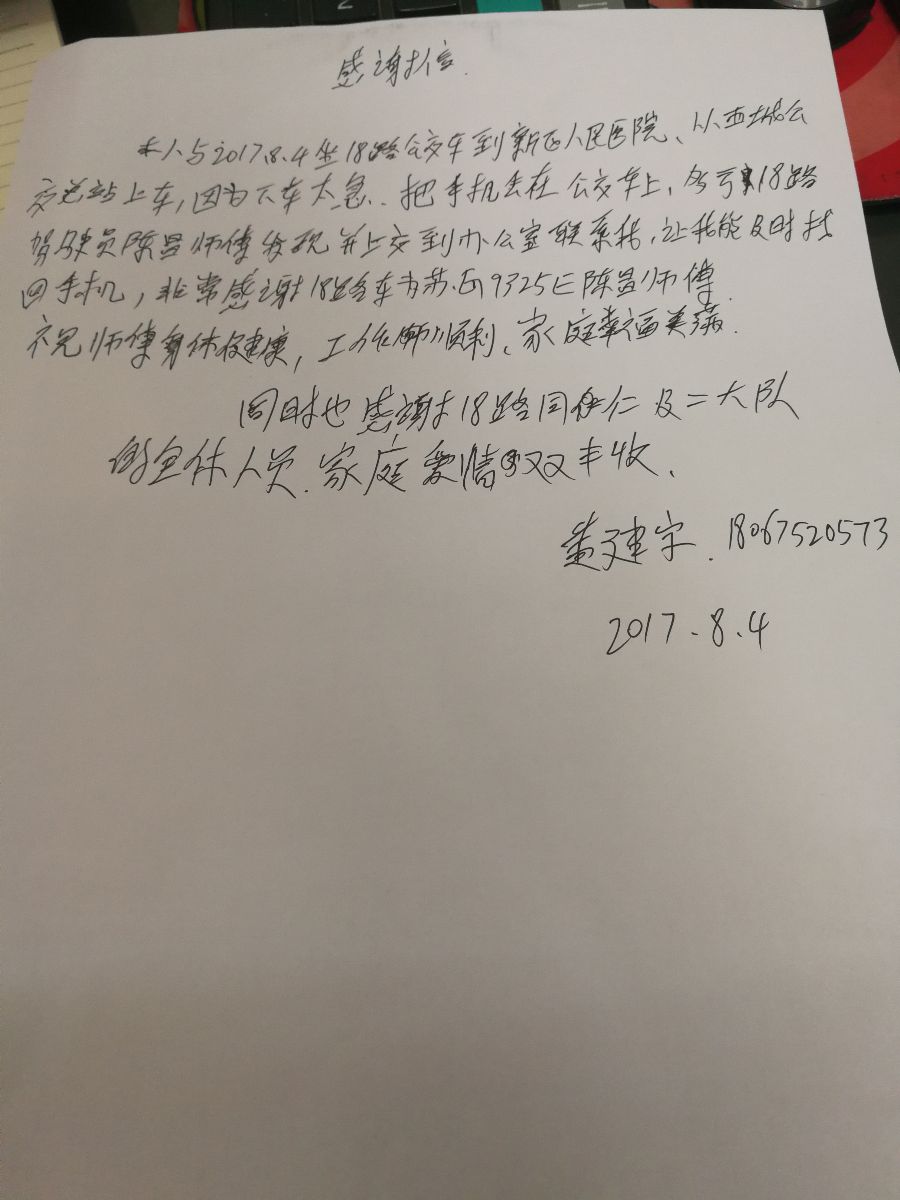 感谢信.
本人与2017.8.4坐18路公交车到新区人民医院、从西城公
交总站上车,因为下车太急.把手机丢在公交车上,多亏18路
驾驶员陈昌师傅发现并上交到办公室联系我,让我能及时找
回手机,非常感谢18路车为苏.9325E陈昌师傅.
祝师傅身体健康,工作顺利、家庭幸福美满.
同时也感谢18路同仁及二大队
的全体人员.家庭爱情双丰收、
建宇.18067520573
2017.8.4